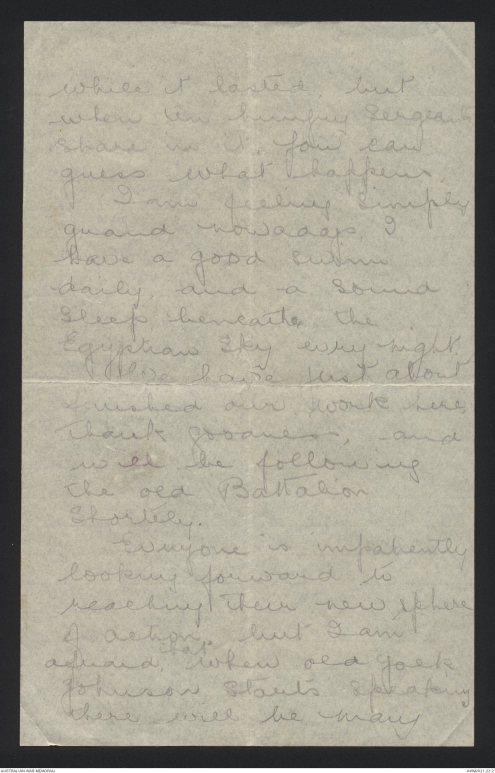 while it lasted, but
when ten hungry Sergeants
share in it, you can
guess what happens.
I am feeling simply
grand nowadays, I
have a good swim
daily, and a sound
sleep beneath the
Egyptian Sky every night.
We have just about
finished our work here,
thank goodness, and
will be following
the old Battalion
Shortely.
Everyone is impatiently
looking forward to
reaching their new sphere
of action, but I am
afraid, that when old Jock
Johnson starts speaking
there will be many
AUSTRALIAN WAR MEMORIAL